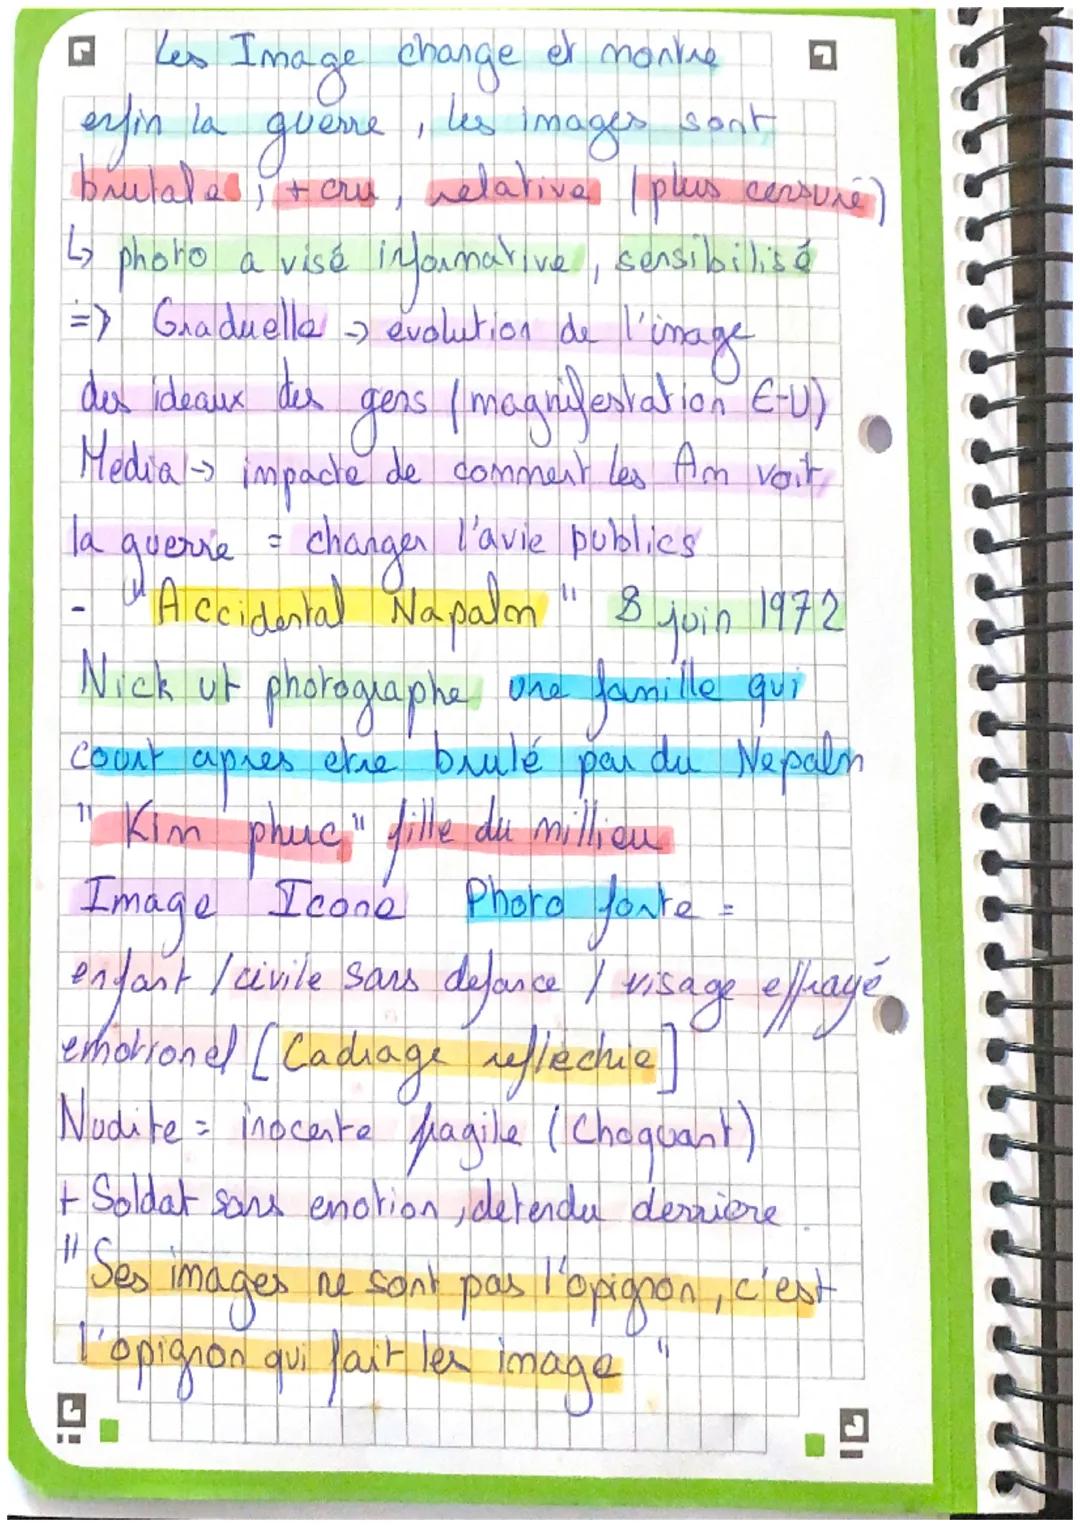 Les Image change et montre
enfin la guerre, les images sont
brutales, + cru, relative (plus censuré)
↳ photo a visé informative, sensibilisé
=> Graduelle -> evolution de l'image
des ideaux des gens (magnifestation E-U)
Media -> impacte de comment les Am voit
la guerre = changer l'avie publics
- "Accidental Napalm" 8 juin 1972
Nick ut photographe une famille qui
court apres etre brulé par du Nepalm
"Kim phuc" fille du millieu
Image Icone Photo forte =
enfant / civile sans defance / visage effrayé
emotionel [Cadrage reflechie]
Nudite = inocente fragile (Choquant)
+ Soldat sans emotion, detendu derriere.
"Ses images ne sont pas l'opignon, c'est
l'opignon qui fait les image"